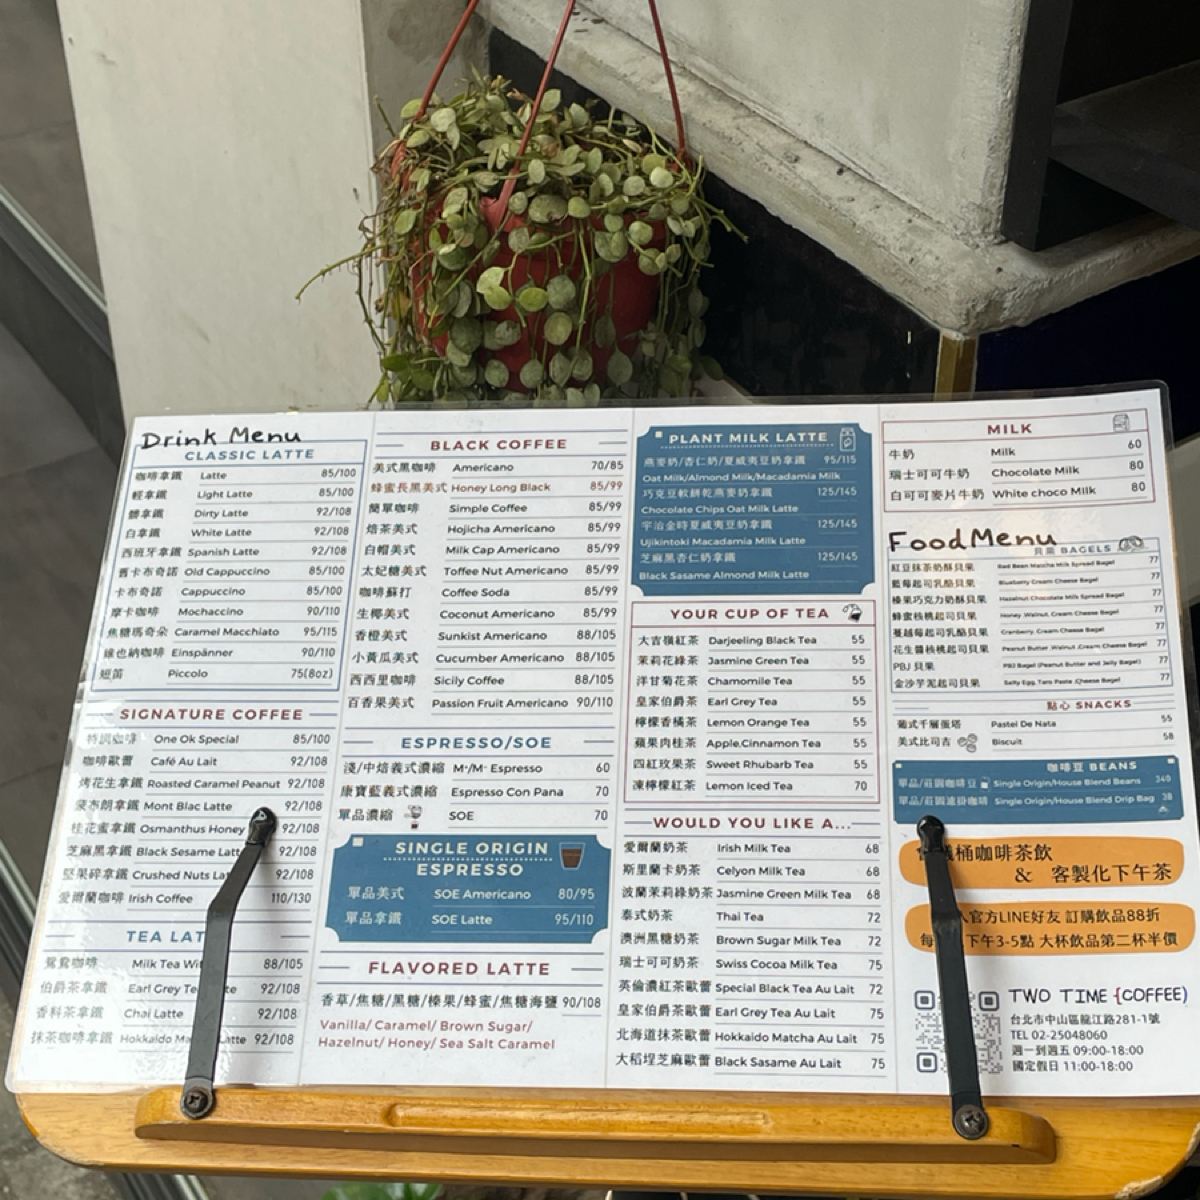 Drink Menu
CLASSIC LATTE
咖啡拿鐵 Latte 85/100
輕拿鐵 Light Latte 85/100
髒拿鐵 Dirty Latte 92/108
白拿鐵 White Latte 92/108
西班牙拿鐵 Spanish Latte 92/108
舊卡布奇諾 Old Cappuccino 85/100
卡布奇諾 Cappuccino 85/100
摩卡咖啡 Mochaccino 90/110
焦糖瑪奇朵 Caramel Macchiato 95/115
維也納咖啡 Einspänner 90/110
短笛 Piccolo 75(8oz)
SIGNATURE COFFEE
特調咖啡 One Ok Special 85/100
咖啡歐蕾 Café Au Lait 92/108
烤花生拿鐵 Roasted Caramel Peanut 92/108
蒙布朗拿鐵 Mont Blac Latte 92/108
桂花蜜拿鐵 Osmanthus Honey 92/108
芝麻黑拿鐵 Black Sesame Latte 92/108
堅果碎拿鐵 Crushed Nuts 92/108
愛爾蘭咖啡 Irish Coffee 110/130
TEA
鴛鴦咖啡 Milk Tea 88/105
伯爵茶拿鐵 Earl Grey 92/108
香料茶拿鐵 Chai Latte 92/108
抹茶咖啡拿鐵 Hokkaido 92/108
BLACK COFFEE
美式黑咖啡 Americano 70/85
蜂蜜長黑美式 Honey Long Black 85/99
簡單咖啡 Simple Coffee 85/99
焙茶美式 Hojicha Americano 85/99
白帽美式 Milk Cap Americano 85/99
太妃糖美式 Toffee Nut Americano 85/99
咖啡蘇打 Coffee Soda 85/99
生椰美式 Coconut Americano 85/99
香橙美式 Sunkist Americano 88/105
小黃瓜美式 Cucumber Americano 88/105
西西里咖啡 Sicily Coffee 88/105
百香果美式 Passion Fruit Americano 90/110
ESPRESSO/SOE
淺/中焙義式濃縮 M+/M- Espresso 60
康寶藍義式濃縮 Espresso Con Pana 70
單品濃縮 SOE 70
SINGLE ORIGIN
ESPRESSO
單品美式 SOE Americano 80/95
單品拿鐵 SOE Latte 95/110
FLAVORED LATTE
香草/焦糖/黑糖/榛果/蜂蜜/焦糖海鹽 90/108
Vanilla/ Caramel/ Brown Sugar/
Hazelnut/ Honey/ Sea Salt Caramel
PLANT MILK LATTE
燕麥奶/杏仁奶/夏威夷豆奶拿鐵 95/115
Oat Milk/Almond Milk/Macadamia Milk
巧克豆軟餅乾燕麥奶拿鐵 125/145
Chocolate Chips Oat Milk Latte
宇治金時夏威夷豆奶拿鐵 125/145
Ujikintoki Macadamia Milk Latte
芝麻黑杏仁奶拿鐵 125/145
Black Sasame Almond Milk Latte
YOUR CUP OF TEA
大吉嶺紅茶 Darjeeling Black Tea 55
茉莉花綠茶 Jasmine Green Tea 55
洋甘菊花茶 Chamomile Tea 55
皇家伯爵茶 Earl Grey Tea 55
檸檬香橘茶 Lemon Orange Tea 55
蘋果肉桂茶 Apple.Cinnamon Tea 55
四紅玫果茶 Sweet Rhubarb Tea 55
凍檸檬紅茶 Lemon Iced Tea 70
WOULD YOU LIKE A...
愛爾蘭奶茶 Irish Milk Tea 68
斯里蘭卡奶茶 Celyon Milk Tea 68
波蘭茉莉綠奶茶 Jasmine Green Milk Tea 68
泰式奶茶 Thai Tea 72
澳洲黑糖奶茶 Brown Sugar Milk Tea 72
瑞士可可奶茶 Swiss Cocoa Milk Tea 75
英倫濃紅茶歐蕾 Special Black Tea Au Lait 72
皇家伯爵茶歐蕾 Earl Grey Tea Au Lait 75
北海道抹茶歐蕾 Hokkaido Matcha Au Lait 75
大稻埕芝麻歐蕾 Black Sasame Au Lait 75
MILK
牛奶 Milk 60
瑞士可可牛奶 Chocolate Milk 80
白可可麥片牛奶 White choco Milk 80
Food Menu
貝果 BAGELS
紅豆抹茶奶酥貝果 Red Bean Matcha Milk Spread Bagel 77
藍莓起司乳酪貝果 Blueberry Cream Cheese Bagel 77
榛果巧克力奶酥貝果 Hazelnut Chocolate Milk Spread Bagel 77
蜂蜜核桃起司貝果 Honey .Walnut. Cream Cheese Bagel 77
蔓越莓起司乳酪貝果 Cranberry. Cream Cheese Bagel 77
花生醬核桃起司貝果 Peanut Butter .Walnut .Cream Cheese Bagel 77
PBJ 貝果 PBJ Bagel (Peanut Butter and Jelly Bagel) 77
金沙芋泥起司貝果 Salty Egg. Taro Paste .Cheese Bagel 77
點心 SNACKS
葡式千層蛋塔 Pastel De Nata 55
美式比司吉 Biscuit 58
咖啡豆 BEANS
單品/莊園咖啡豆 Single Origin/House Blend Beans 349
單品/莊園濾掛咖啡 Single Origin/House Blend Drip Bag 38
桶咖啡茶飲
& 客製化下午茶
官方LINE好友 訂購飲品88折
每 下午3-5點 大杯飲品第二杯半價
TWO TIME {COFFEE}
台北市中山區龍江路281-1號
TEL 02-25048060
週一到週五 09:00-18:00
國定假日 11:00-18:00